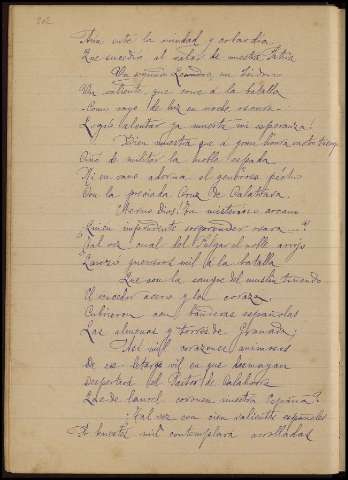 202
Ana ante la ruindad y cobardia
Que sucedió al valor de nuestra Patria
Un segundo Leonidas, un
Un valiente que corre á la batalla
Como rayo de luz en noche oscura
alentar ya muerta mi esperanza!
Bien muestra que á gran honra
Ciñó de militar la noble espada
Ni en vano adorna el generoso pecho
Con la preciada Cruz de Calatrava.
Eterno Dios! Tu misterioso arcano
¿Quién imprudente sorprender osara...?
¿Tal vez, cual del Pulgar el noble arrojo
Lanzó guerreros mil á la batalla
Que con la sangre del muslim tiñendo
El vencedor acero y la coraza
Cubrieron con banderas españolas
Las almenas y torres de Granada;
Así mil corazones animosos
De ese letargo vil en que desmayan
Despertará del Pastor de Calahorra
Que de laurel coronen nuestra España?
¡Tal vez con cien valientes españoles
huestes mil contemplara arrolladas